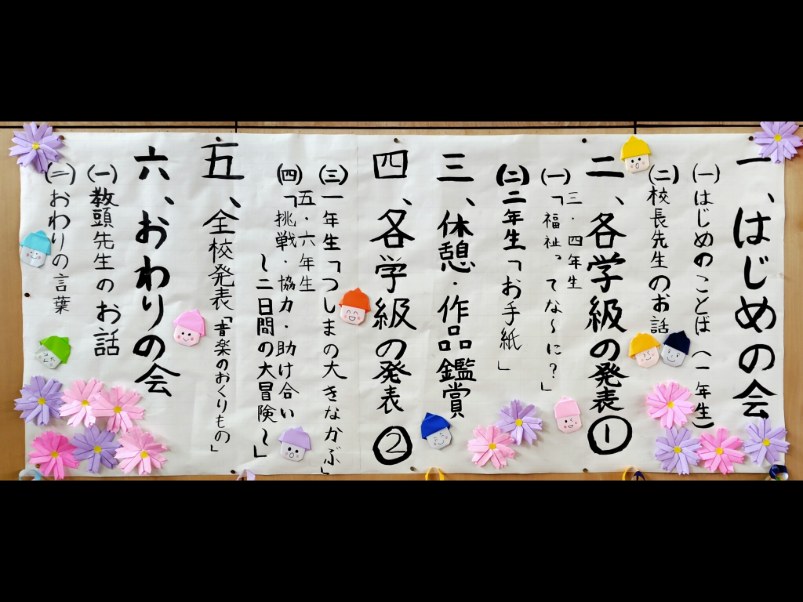 一、はじめの会
(一)はじめのことば(一年生)
(二)校長先生のお話
二、各学級の発表①
三・四年生
(一)「福祉ってな～に？」
(二)二年生「お手紙」
三、休憩・作品鑑賞
四、各学級の発表②
(三)一年生「つしまの大きなかぶ」
五・六年生
(四)「挑戦・協力・助け合い
～二日間の大冒険～」
五、全校発表「音楽のおくりもの」
六、おわりの会
(一)教頭先生のお話
(二)おわりの言葉